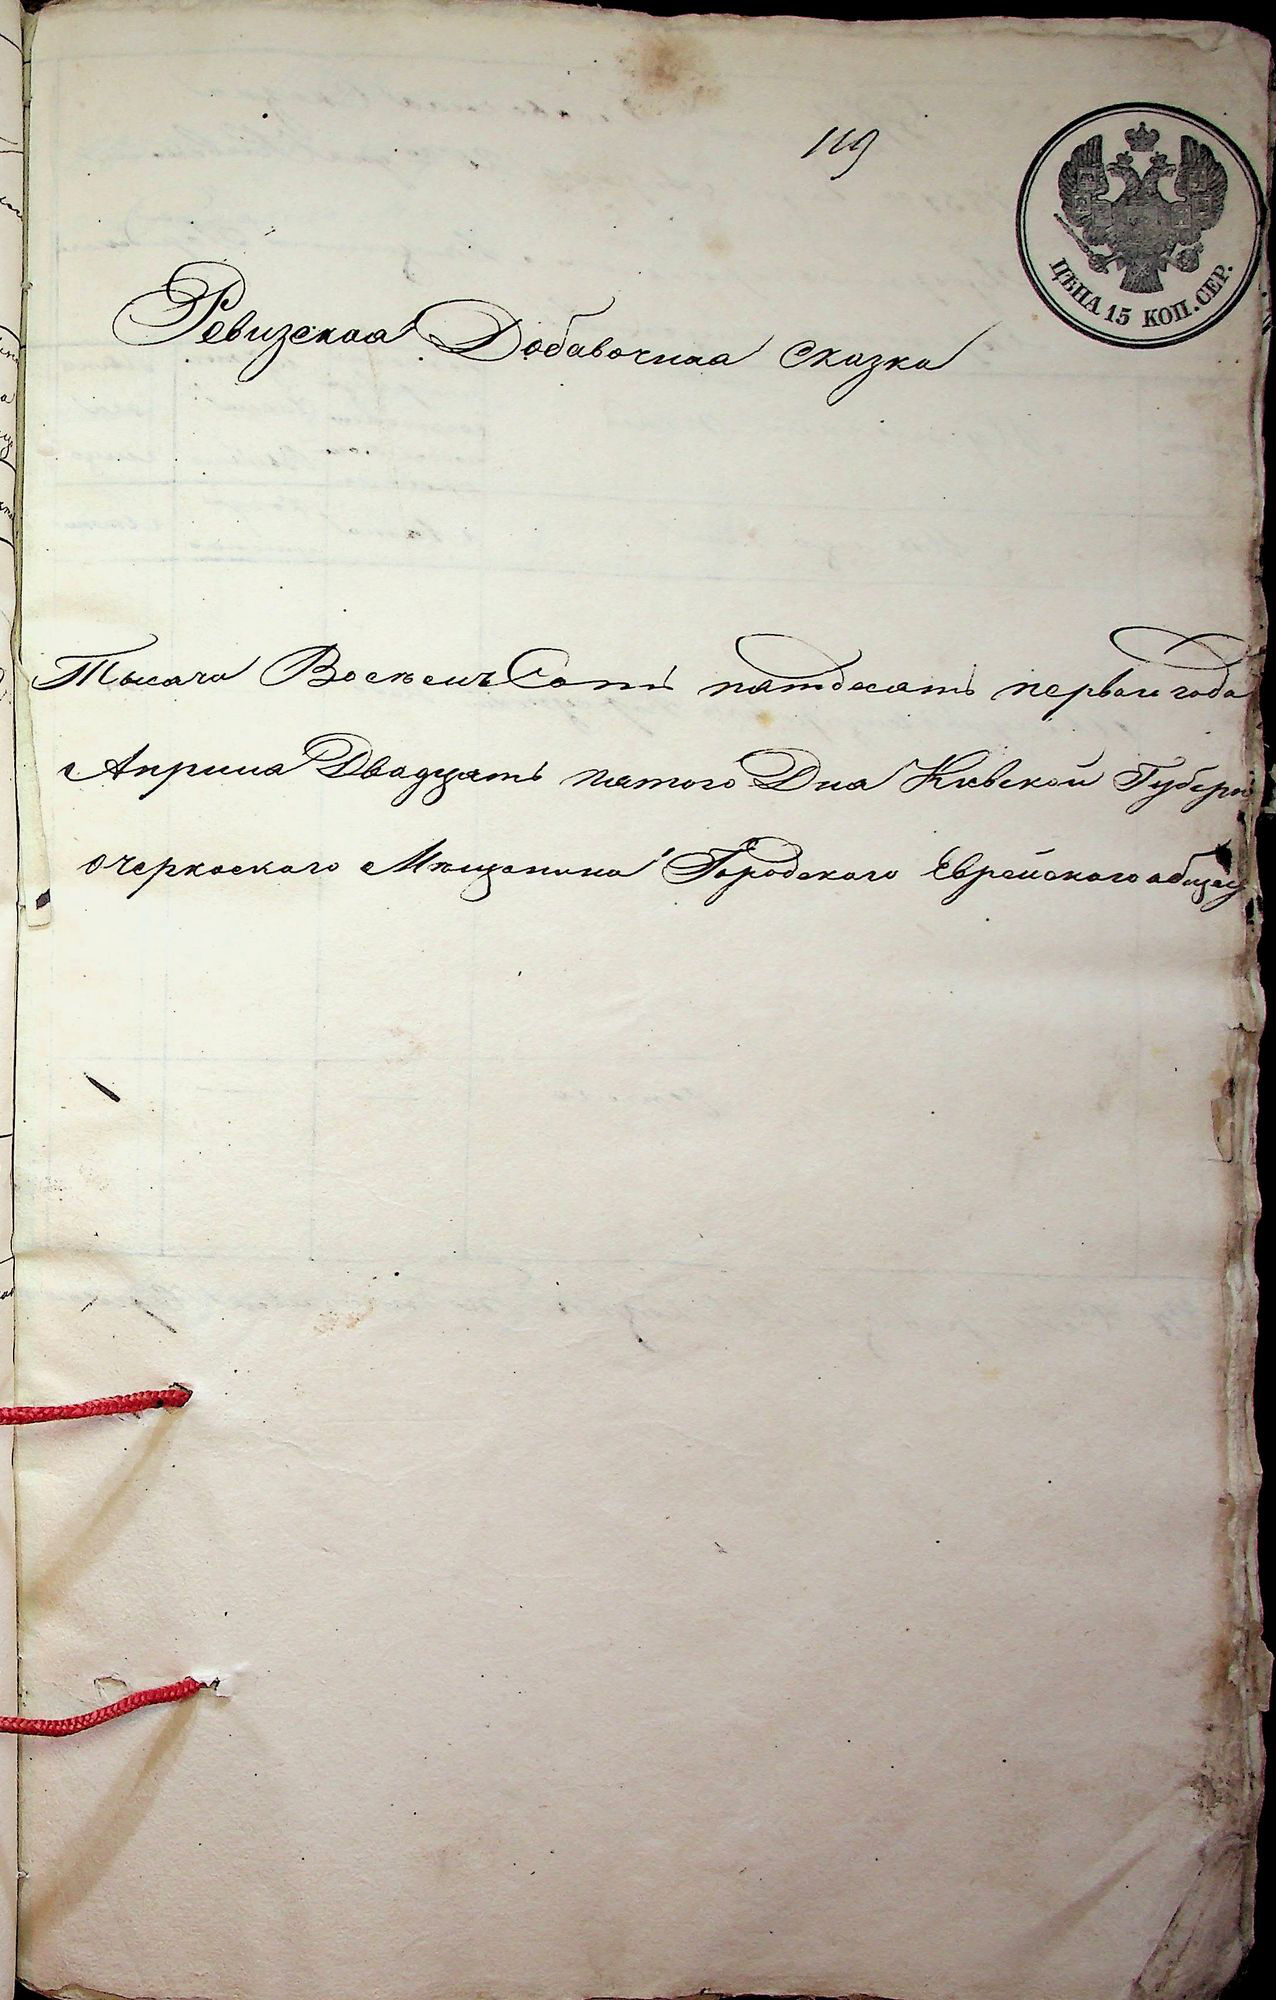 119
ЦѢНА 15 КОП. СЕР.
Ревизская Добавочная сказка
Тысяча Восемь Сотъ пятдесятъ первого года
Априля Двадцать пятого Дня Киевской Губерн
очеркаского Мещанина Городского Еврейского общес